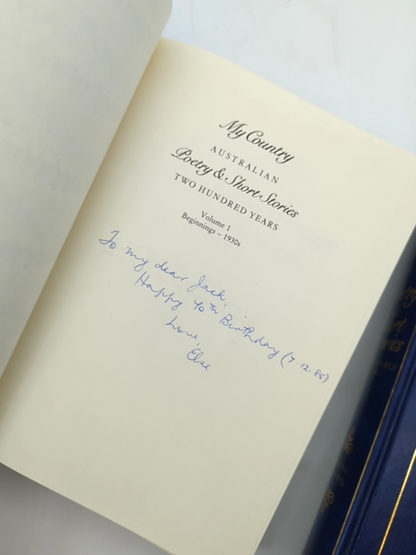 My Country
AUSTRALIAN
Poetry & Short Stories
TWO HUNDRED YEARS
Volume 1
Beginnings – 1930s
To my dear Jack,
Happy 40th Birthday (7.12.88)
Love,
Else